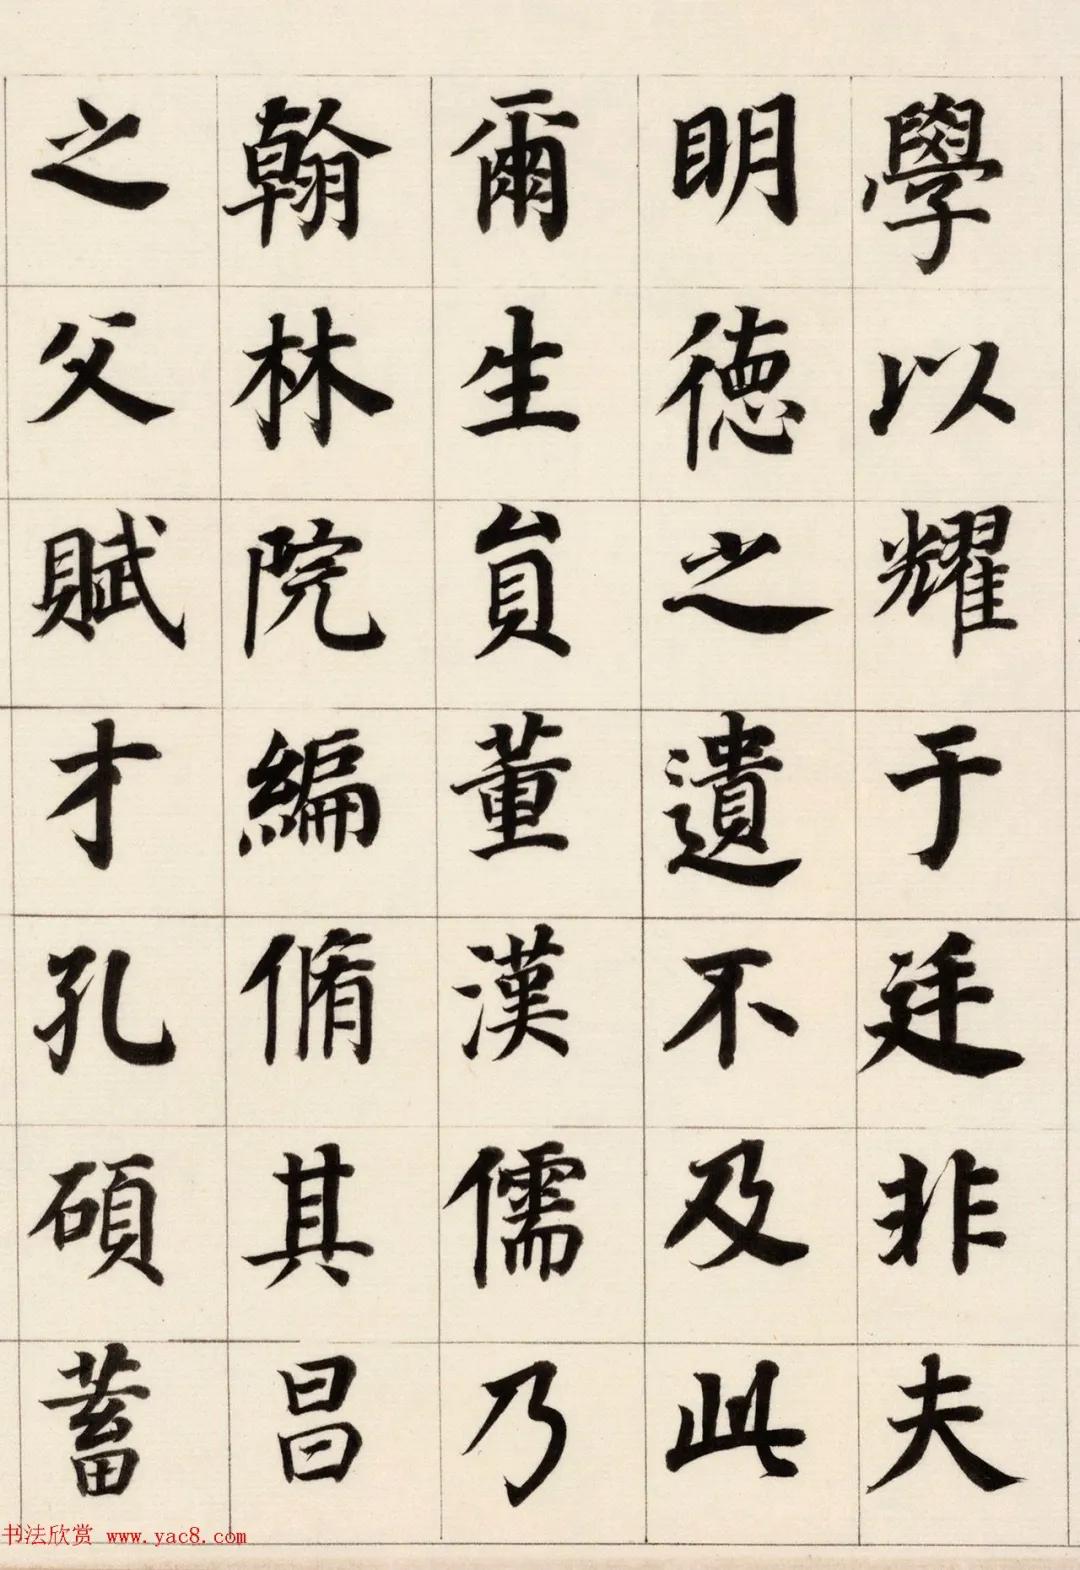 學以耀于廷非夫
明德之遺不及此
爾生員董漢儒乃
翰林院編脩其昌
之父賦才孔碩蓄
书法欣赏 www.yac8.com